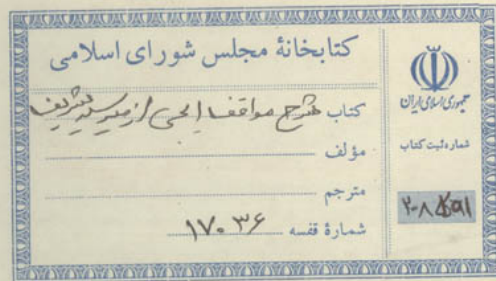 کتابخانهٔ مجلس شورای اسلامی
کتاب شرح مواقف الحی از میر سید شریف
مؤلف
مترجم
شمارهٔ قفسه ۱۷۰۳۶
جمهوری اسلامی ایران
شمارهٔ ثبت کتاب